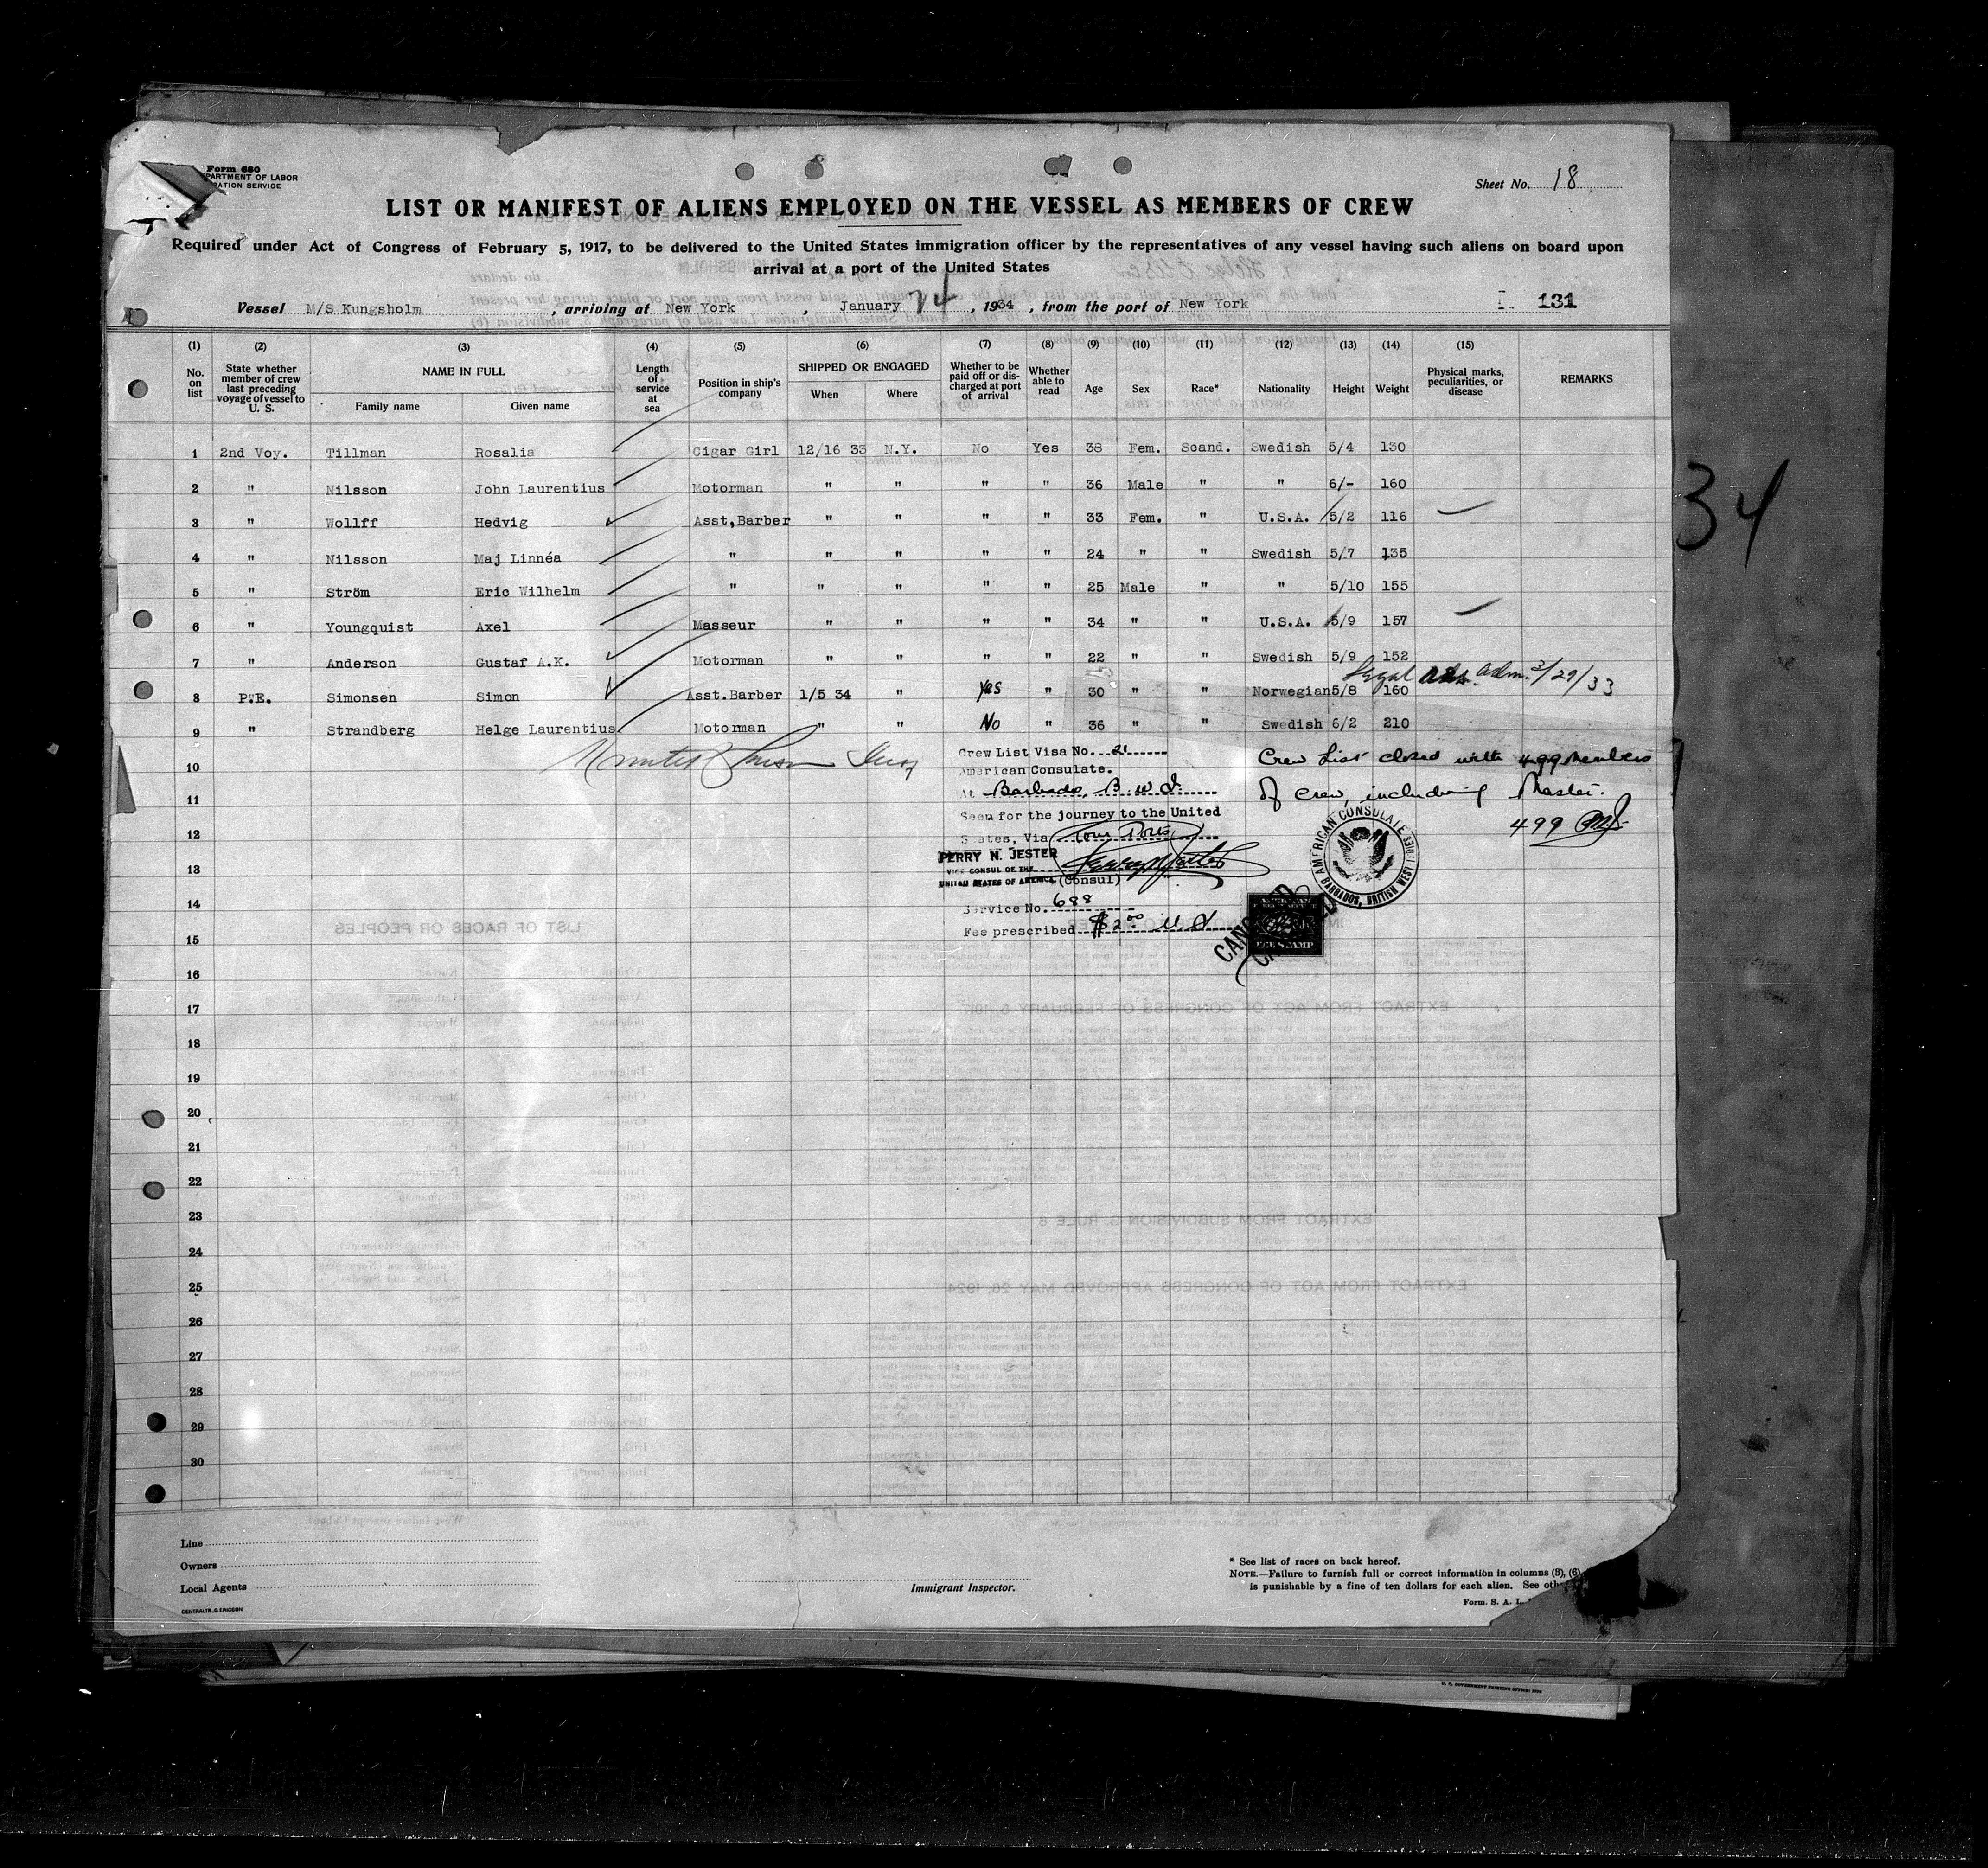 Form 680
PARTMENT OF LABOR
RATION SERVICE
Sheet No. 18
LIST OR MANIFEST OF ALIENS EMPLOYED ON THE VESSEL AS MEMBERS OF CREW
Required under Act of Congress of February 5, 1917, to be delivered to the United States immigration officer by the representatives of any vessel having such aliens on board upon
arrival at a port of the United States
Vessel M/S Kungsholm, arriving at New York, January 24, 1934, from the port of New York 131
(1) (2) (3) (4) (5) (6) (7) (8) (9) (10) (11) (12) (13) (14) (15)
No. on list State whether member of crew last preceding voyage of vessel to U. S. NAME IN FULL Family name Given name Length of service at sea Position in ship's company SHIPPED OR ENGAGED When Where Whether to be paid off or discharged at port of arrival Whether able to read Age Sex Race* Nationality Height Weight Physical marks, peculiarities, or disease REMARKS
1 2nd Voy. Tillman Rosalia Cigar Girl 12/16 33 N.Y. No Yes 38 Fem. Scand. Swedish 5/4 130
2 " Nilsson John Laurentius Motorman " " " " 36 Male " " 6/- 160
3 " Wollff Hedvig Asst,Barber " " " " 33 Fem. " U.S.A. 5/2 116
4 " Nilsson Maj Linnéa " " " " " 24 " " Swedish 5/7 135
5 " Ström Eric Wilhelm " " " " " 25 Male " " 5/10 155
6 " Youngquist Axel Masseur " " " " 34 " " U.S.A. 5/9 157
7 " Anderson Gustaf A.K. Motorman " " " " 22 " " Swedish 5/9 152
Legal adm. 3/29/33
8 P.E. Simonsen Simon Asst.Barber 1/5 34 " Yes " 30 " " Norwegian 5/8 160
9 " Strandberg Helge Laurentius Motorman " " No " 36 " " Swedish 6/2 210
10
11
12
13
14
15
16
17
18
19
20
21
22
23
24
25
26
27
28
29
30
Crew List Visa No. 21
American Consulate.
At Barbados, B.W.I.
Seen for the journey to the United
States, Via
PERRY N. JESTER
VICE CONSUL OF THE
UNITED STATES OF AMERICA (Consul)
Service No. 688
Fee prescribed $2.00 U.S.
Crew List closed with 499 members
of crew, including Master.
499
AMERICAN CONSULATE
BARBADOS, BRITISH WEST INDIES
CANCELLED
FEE STAMP
34
Line
Owners
Local Agents
CENTRALTR.G.ERICSON
Immigrant Inspector.
* See list of races on back hereof.
NOTE.—Failure to furnish full or correct information in columns (3), (6)
is punishable by a fine of ten dollars for each alien. See
Form. S. A. L.